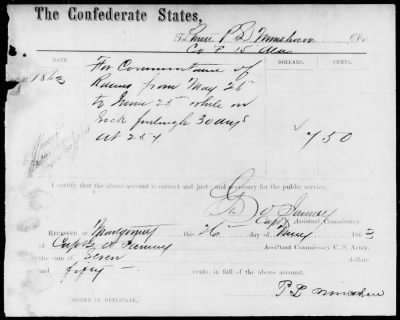 The Confederate States,
To P. L. Dr.
Co F 15 Ala
DATE DOLLARS. CENTS.
1863 For Commutation of
Rations from May 25
to June 25 while on
Sick furlough 30 days
at 25 ¢ 7 50
I certify that the above account is correct and just; and necessary for the public service.
Assistant Commissary.
RECEIVED at Montgomery this 26 1863
of Capt G. Assistant Commissary C. S. Army
the sum of Seven dollars
and fifty cents, in full of the above account.
P. L.
[SIGNED IN DUPLICATE.]